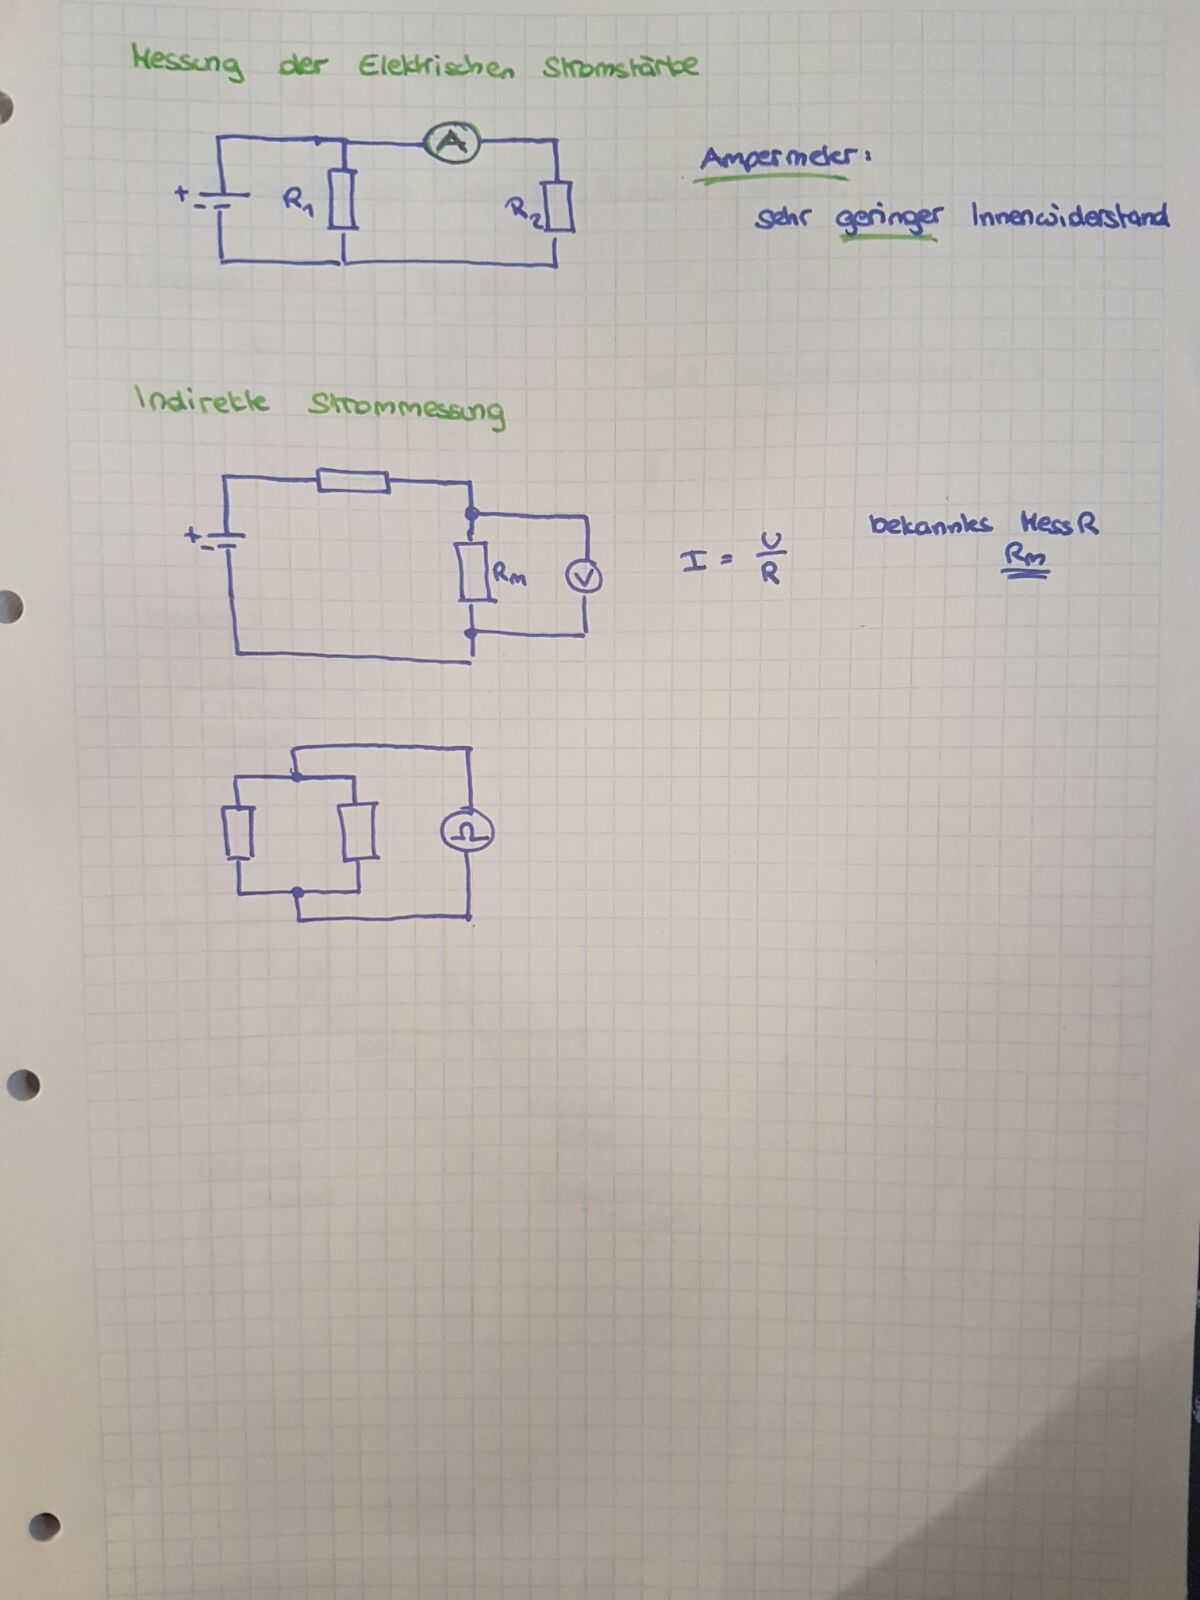 Messung der Elektrischen Stromstärke
A
+
-
R1
R2
Ampermeter:
sehr geringer Innenwiderstand
Indirekte Strommessung
+
-
Rm
V
I = U/R
bekanntes Mess R
Rm
Ω